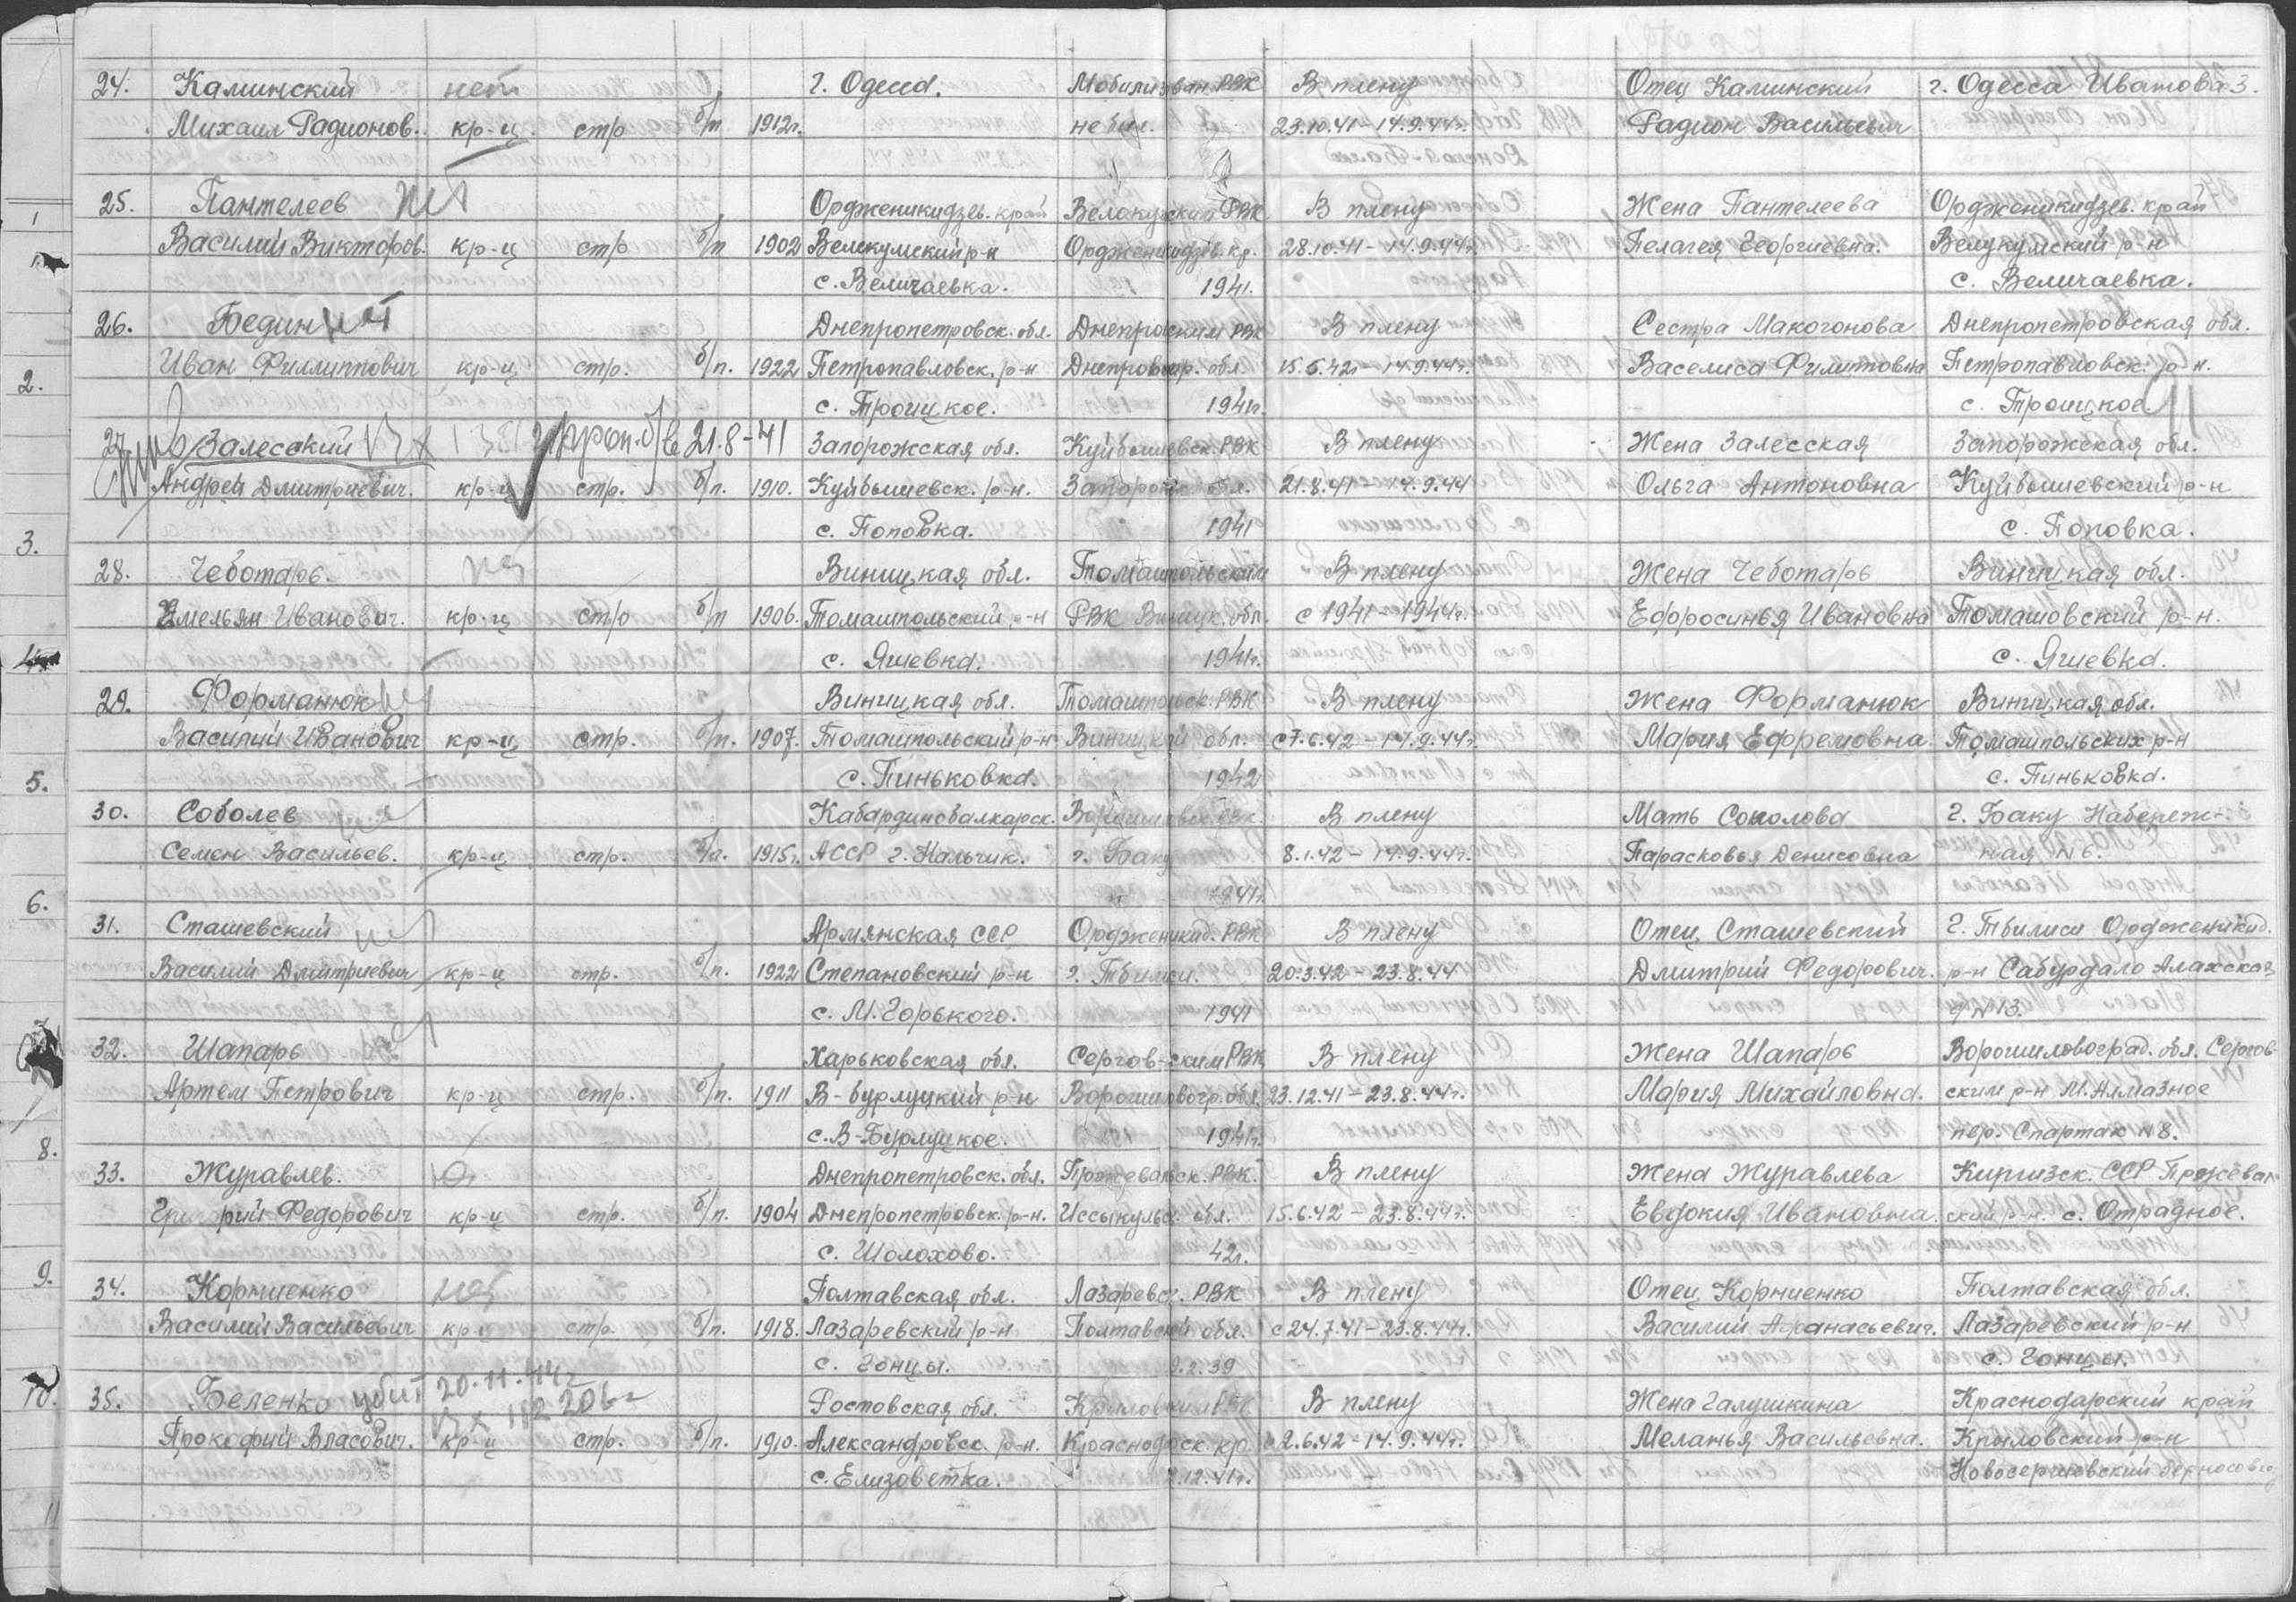 24. Каминский нет г. Одесса. Мобилизован РВК В плену Отец Каминский г. Одесса Иванова 3.
Михаил Радионов. кр-ц стр б/п 1912г. не был. 23.10.41-14.9.44г. Радион Васильевич
25. Пантелеев нет Орджоникидзев. край Велокумским РВК В плену Жена Пантелеева Орджоникидзев. край
Василий Викторов. кр-ц стр б/п 1902 Велокумский р-н Орджоникидзев. кр. 28.10.41-14.9.44г. Пелагея Георгиевна. Велукумский р-н
с. Величаевка. 1941. с. Величаевка.
26. Бедин нет Днепропетровск. обл. Днепровским РВК В плену Сестра Макогонова Днепропетровская обл.
Иван Филиппович кр-ц стр. б/п. 1922 Петропавловск. р-н Днепропетр. обл. 15.5.42г-14.9.44г. Василиса Филиповна Петропавловск. р-н.
с. Троицкое. 1941г. с. Троицкое.
27. Залесский проп. б/в 21.8-41 Запорожская обл. Куйбышевск. РВК В плену Жена Залесская Запорожская обл.
Андрей Дмитриевич. кр-ц стр. б/п. 1910. Куйбышевск. р-н. Запорож. обл. 21.8.41-14.9.44 Ольга Антоновна Куйбышевский р-н
с. Поповка. 1941 с. Поповка.
28. Чеботарь. Виницкая обл. Томашпольский В плену Жена Чеботарь Виницкая обл.
Емельян Иванович. кр-ц стр б/п 1906. Томашпольский р-н РВК Виницк. обл. с 1941-1944г. Ефросинья Ивановна Томашовский р-н.
с. Яшевка. 1941г. с. Яшевка.
29. Форманюк Виницкая обл. Томашпольск. РВК В плену Жена Форманюк Виницкая обл.
Василий Иванович кр-ц стр. б/п. 1907. Томашпольский р-н Виницкой обл. с 7.6.42-14.9.44г. Мария Ефремовна Томашпольских р-н
с. Пиньковка. 1942 с. Пиньковка.
30. Соболев Кабардинобалкарск. В плену Мать Соколова г. Баку Набереж-
Семен Васильев. кр-ц стр. б/п. 1915г. АССР г. Нальчик. г. Баку 8.1.42-14.9.44г. Парасковья Денисовна ная №6.
1941г.
31. Сташевский Армянская ССР Орджоникид. РВК В плену Отец Сташевский г. Тбилиси Орджоникид.
Василий Дмитриевич кр-ц стр. б/п. 1922 Степановский р-н г. Тбилиси. 20.3.42-23.8.44 Дмитрий Федорович. р-н Сабурдало Алахская
с. М.Горького. 1941 №13.
32. Шапарь Харьковская обл. Сергов-ским РВК В плену Жена Шапарь Ворошиловоград. обл. Сергов-
Артем Петрович кр-ц стр. б/п. 1911 В-бурлуцкий р-н Ворошиловогр. обл. 23.12.41-23.8.44г. Мария Михайловна. ским р-н М.Алмазное
с. В-Бурлуцкое. 1941г. пер. Спартак №8.
33. Журавлев. Днепропетровск. обл. Пржевальск. РВК. В плену Жена Журавлева Киргизск. ССР Пржеваль
Григорий Федорович кр-ц стр. б/п. 1904 Днепропетровск. р-н. Иссыкульс. обл. 15.6.42-23.8.44г. Евдокия Ивановна. ский р-н. с. Отрадное.
с. Шолохово. 42г.
34. Корниенко нет Полтавская обл. Лазаревс. РВК В плену Отец Корниенко Полтавская обл.
Василий Васильевич кр-ц стр. б/п. 1918. Лазаревский р-н Полтавской обл. с 24.7.41-23.8.44г. Василий Афанасьевич. Лазаревский р-н
с. Гонцы. 39 с. Гонцы.
35. Беленко убит 20.11.44г Ростовская обл. Крыловским РВК В плену Жена Галушкина Краснодарский край
Прокофий Власович. кр-ц стр. б/п. 1910. Александровск. р-н. Краснодарск. кр. с 2.6.42-14.9.44г. Меланья Васильевна. Крыловский р-н
с. Елизоветка. 12.41г. Новосергиевский
1
2.
3.
4.
5.
6.
8.
9.
10.
11